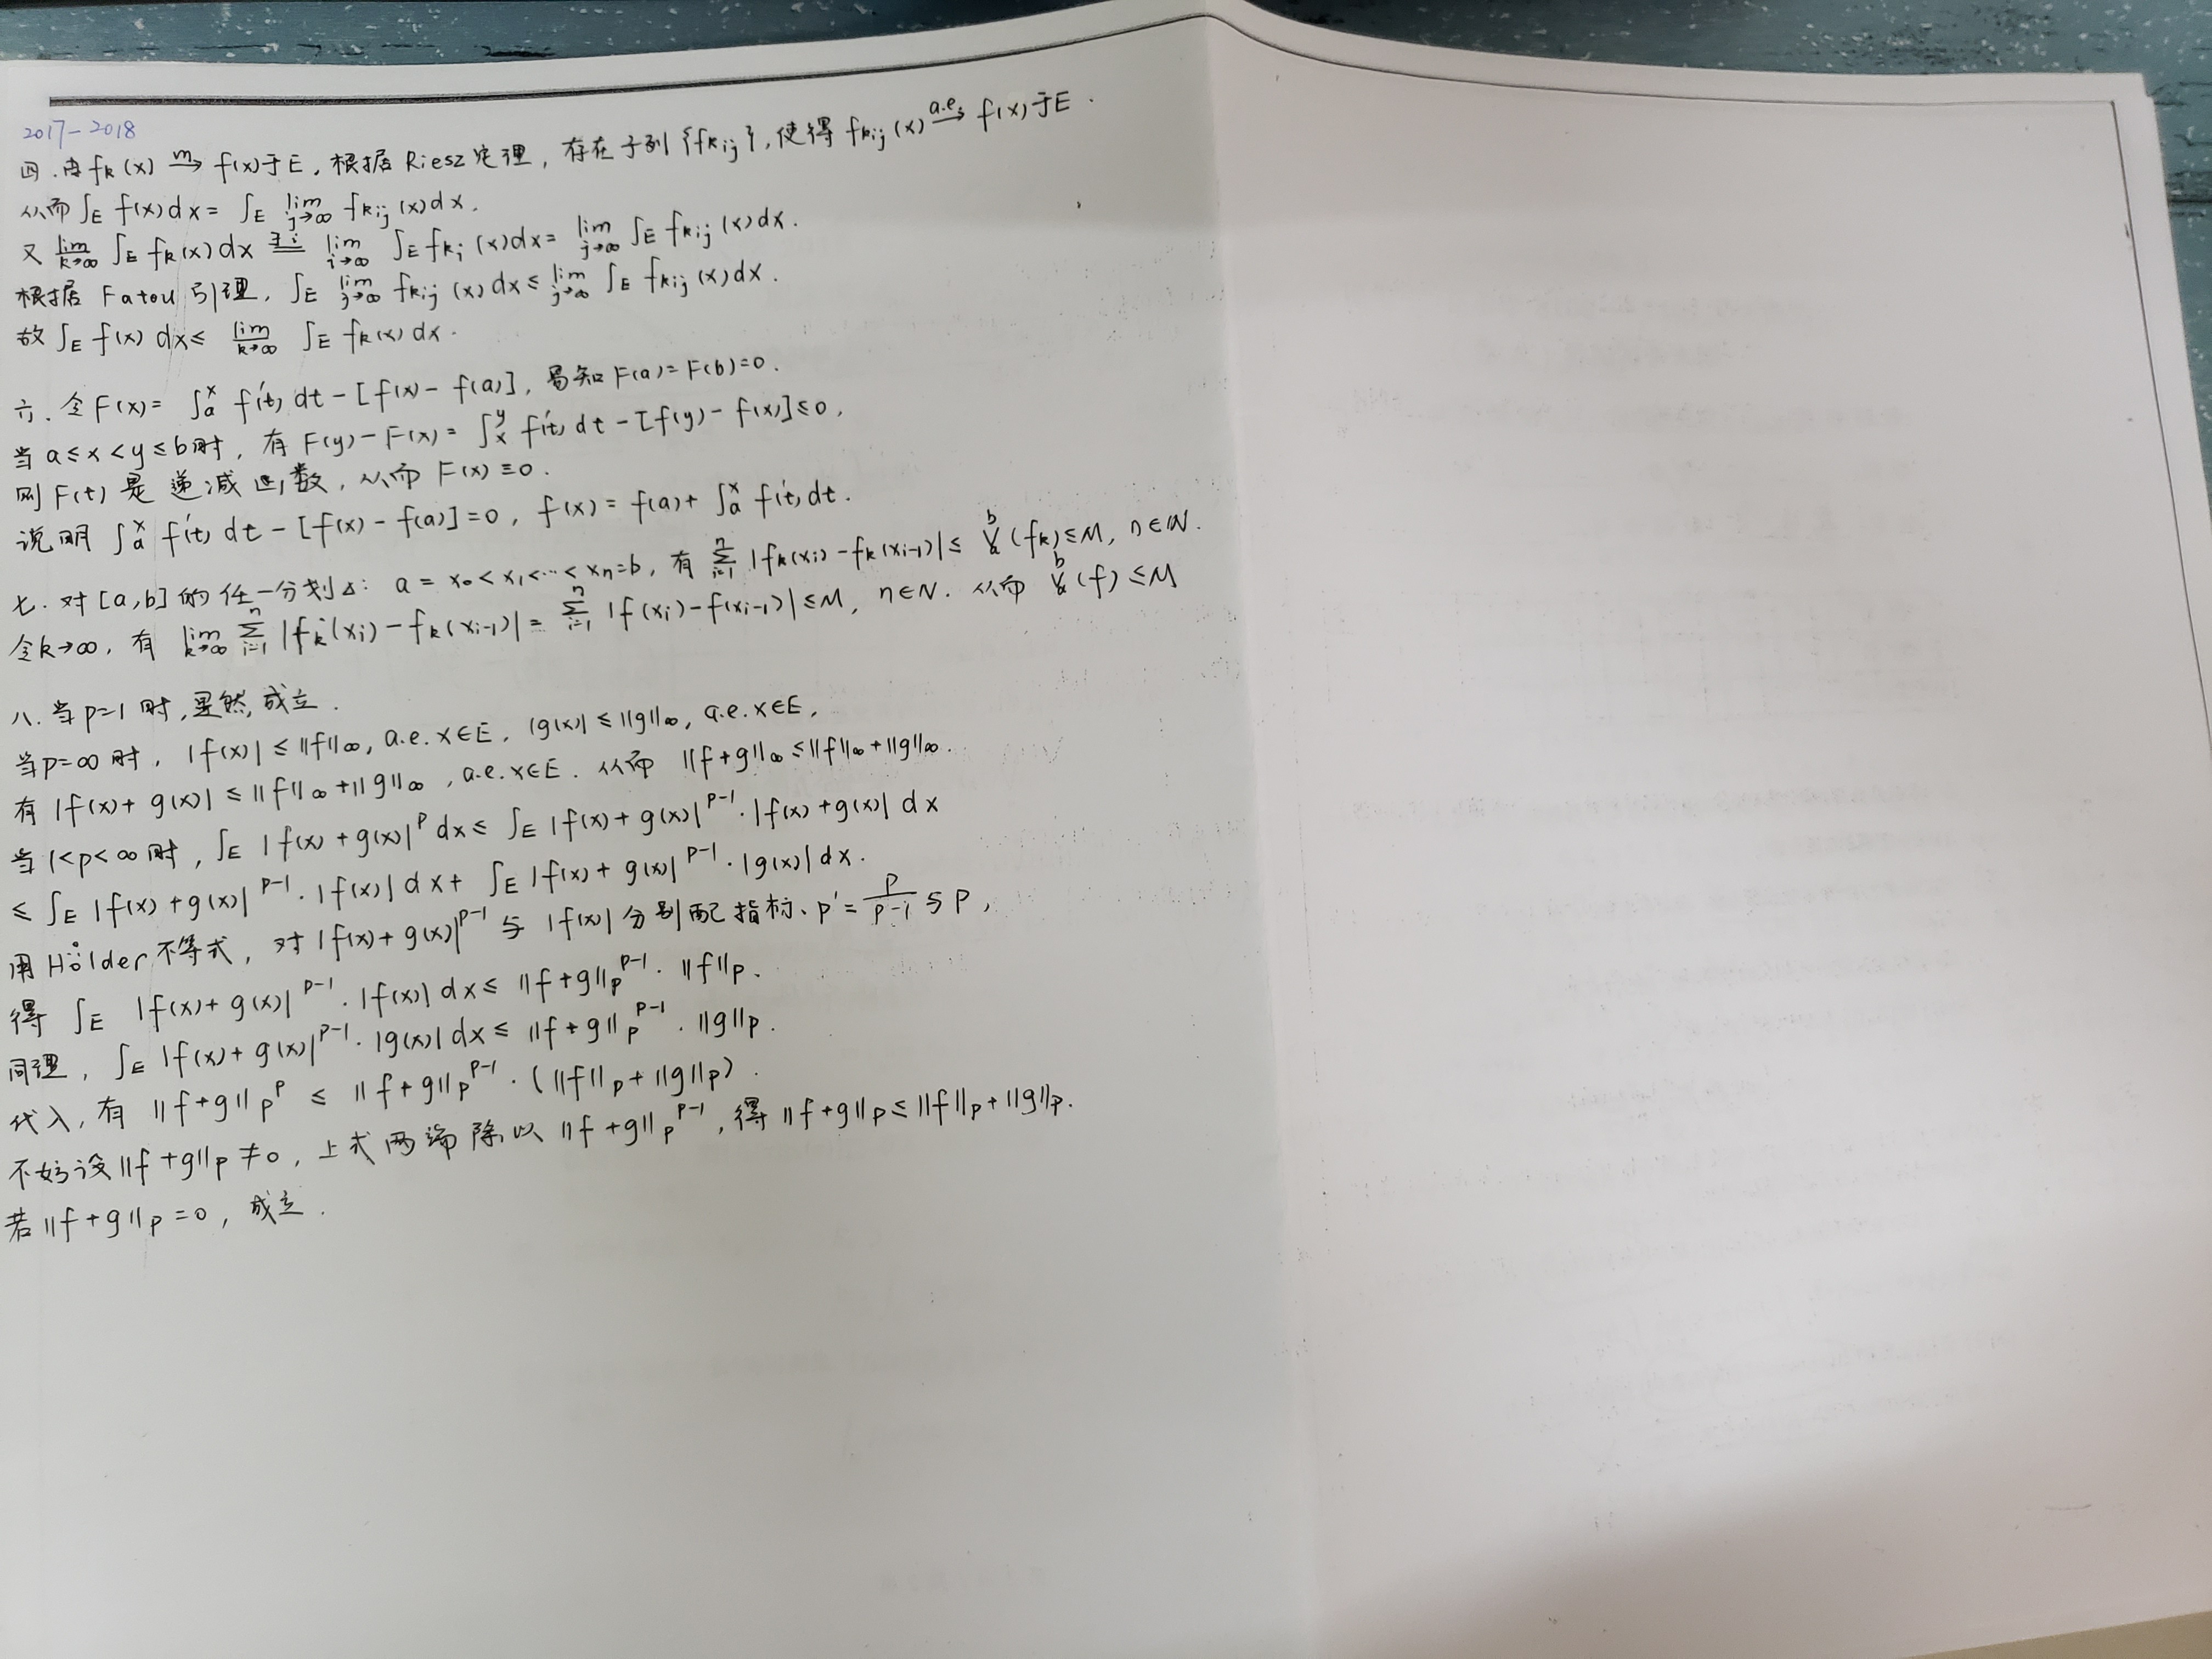 2017-2018
四.由 fk(x) →m f(x)于E,根据Riesz定理,存在子列{fkij},使得 fkij(x) →a.e. f(x)于E.
从而∫E f(x)dx = ∫E lim j→∞ fkij(x)dx.
又 lim k→∞ ∫E fk(x)dx =∃i= lim i→∞ ∫E fki(x)dx = lim j→∞ ∫E fkij(x)dx.
根据 Fatou 引理, ∫E lim j→∞ fkij(x)dx ≤ lim j→∞ ∫E fkij(x)dx.
故 ∫E f(x)dx ≤ lim k→∞ ∫E fk(x)dx.
六.令F(x) = ∫a^x f'(t)dt - [f(x) - f(a)], 易知 F(a)=F(b)=0.
当 a≤x<y≤b时, 有 F(y)-F(x) = ∫x^y f'(t)dt - [f(y) - f(x)] ≤ 0,
则 F(t) 是递减函数, 从而 F(x)≡0.
说明 ∫a^x f'(t)dt - [f(x) - f(a)] = 0, f(x) = f(a) + ∫a^x f'(t)dt.
七.对[a,b]的任一分划Δ: a = x0<x1<…<xn=b, 有 Σ i=1 n |fk(xi) - fk(xi-1)| ≤ V a b (fk) ≤ M, n∈N.
令k→∞, 有 lim k→∞ Σ i=1 n |fk(xi) - fk(xi-1)| = Σ i=1 n |f(xi) - f(xi-1)| ≤ M, n∈N. 从而 V a b (f) ≤ M
八.当p=1时,显然成立.
当p=∞时, |f(x)| ≤ ||f||∞, a.e. x∈E, |g(x)| ≤ ||g||∞, a.e. x∈E,
有 |f(x)+g(x)| ≤ ||f||∞ + ||g||∞, a.e. x∈E. 从而 ||f+g||∞ ≤ ||f||∞ + ||g||∞.
当1<p<∞时, ∫E |f(x)+g(x)|^p dx ≤ ∫E |f(x)+g(x)|^{p-1}·|f(x)+g(x)| dx
≤ ∫E |f(x)+g(x)|^{p-1}·|f(x)| dx + ∫E |f(x)+g(x)|^{p-1}·|g(x)| dx.
用Hölder不等式, 对|f(x)+g(x)|^{p-1} 与 |f(x)| 分别配指标、p' = p/(p-1) 与 p,
得 ∫E |f(x)+g(x)|^{p-1}·|f(x)| dx ≤ ||f+g||p^{p-1}·||f||p.
同理, ∫E |f(x)+g(x)|^{p-1}·|g(x)| dx ≤ ||f+g||p^{p-1}·||g||p.
代入, 有 ||f+g||p^p ≤ ||f+g||p^{p-1}·(||f||p + ||g||p).
不妨设||f+g||p ≠ 0, 上式两端除以 ||f+g||p^{p-1}, 得 ||f+g||p ≤ ||f||p + ||g||p.
若||f+g||p = 0, 成立.